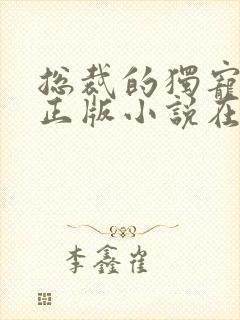 总裁的獨寵
正版小說在
李鑫崔